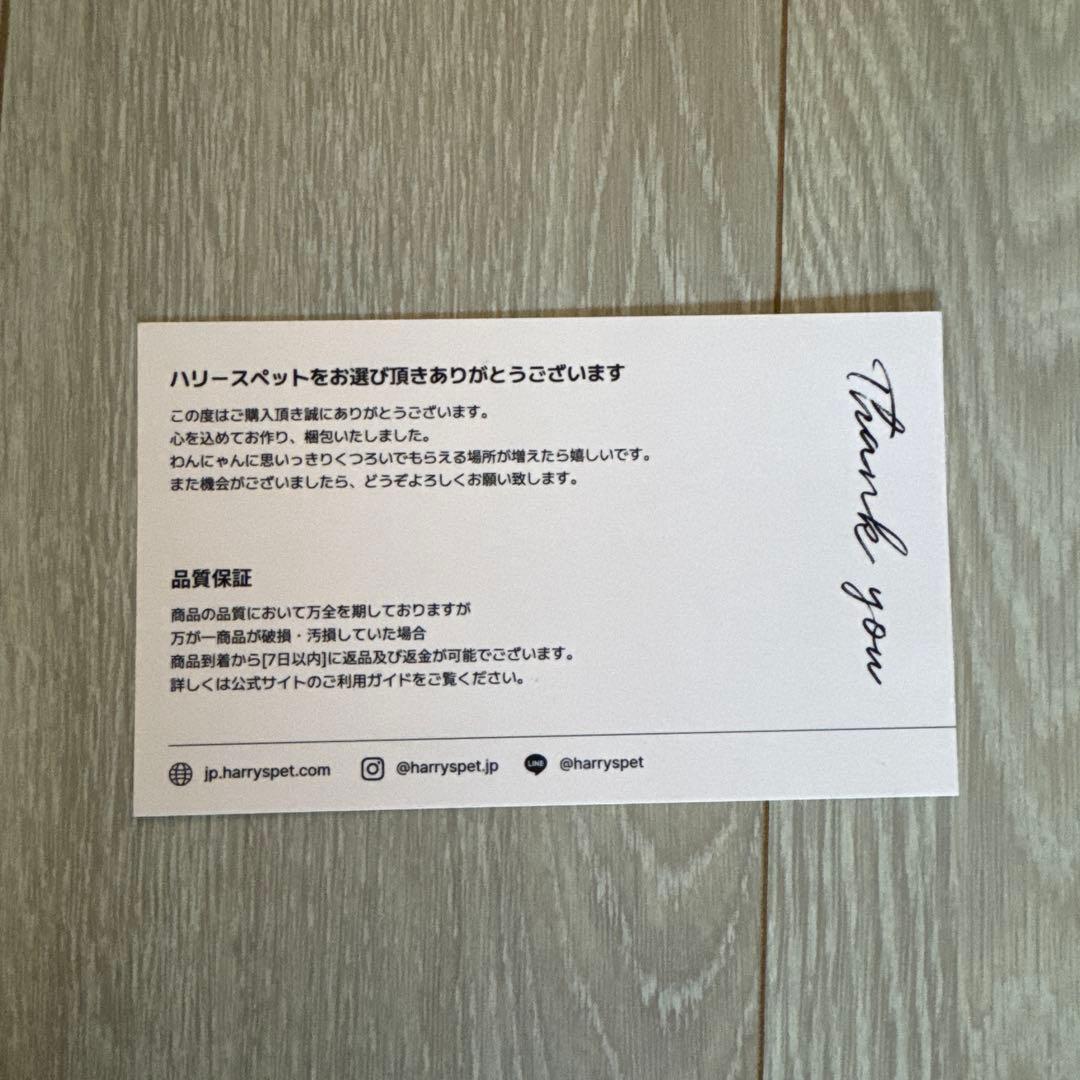 ハリースペットをお選び頂きありがとうございます
この度はご購入頂き誠にありがとうございます。
心を込めてお作り、梱包いたしました。
わんにゃんに思いっきりくつろいでもらえる場所が増えたら嬉しいです。
また機会がございましたら、どうぞよろしくお願い致します。
品質保証
商品の品質において万全を期しておりますが
万が一商品が破損・汚損していた場合
商品到着から[7日以内]に返品及び返金が可能でございます。
詳しくは公式サイトのご利用ガイドをご覧ください。
jp.harryspet.com @harryspet.jp LINE @harryspet
Thank you